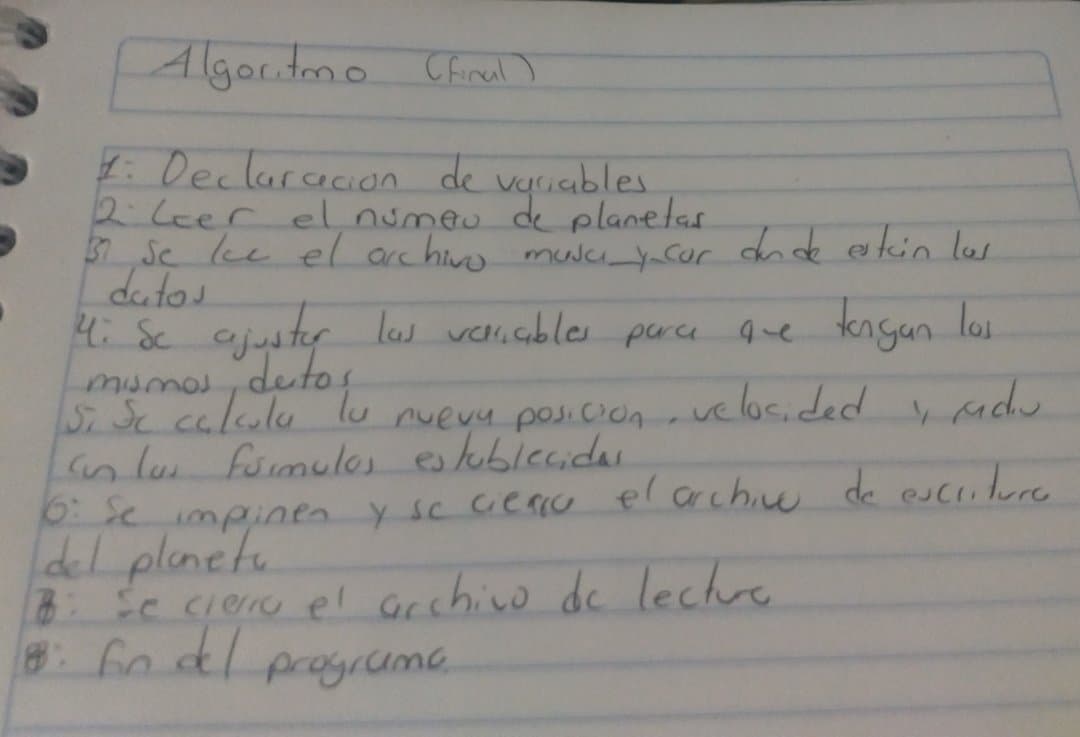 Algoritmo (final)
1: Declaracion de variables
2: Leer el número de planetas
3: Se lee el archivo masa_y_cor donde están los
datos
4: Se ajustar las variables para que tengan los
mismos datos
5: Se calcula la nueva posicion, velocidad y radio
con las formulas establecidas
6: Se imprimen y se cierra el archivo de escritura
del planeta
7: Se cierra el archivo de lectura
8: fin del programa.